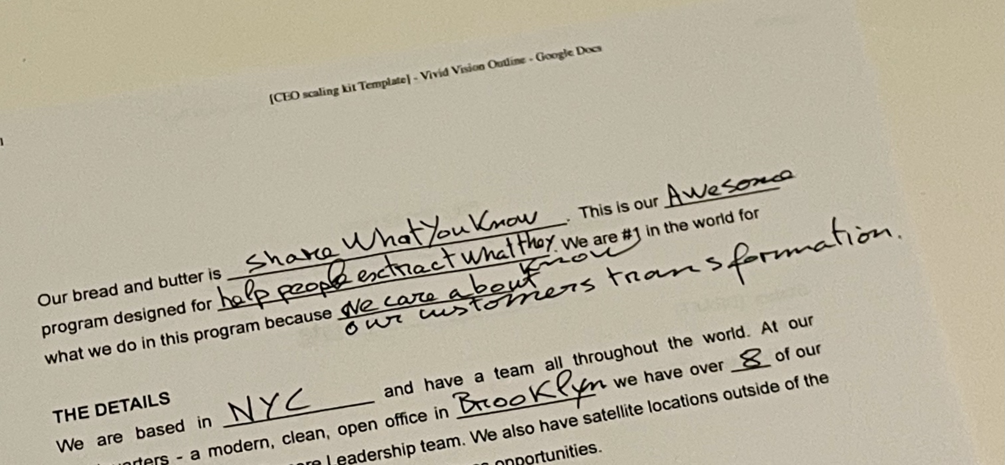 [CEO scaling kit Template] - Vivid Vision Outline - Google Docs
Our bread and butter is Share What You Know. This is our Awesome
program designed for help people extract what they know. We are #1 in the world for
what we do in this program because We care about our customers transformation.
THE DETAILS
We are based in NYC and have a team all throughout the world. At our
- a modern, clean, open office in Brooklyn we have over 8 of our
Leadership team. We also have satellite locations outside of the
opportunities.